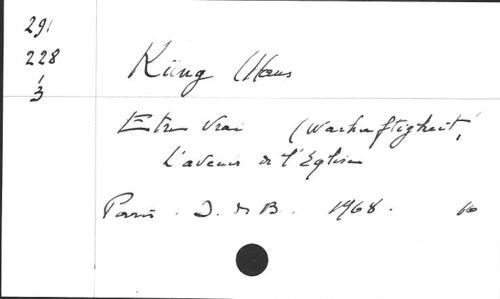 291
228
/
3
Küng Hans
Etre vrai (Warhaftigkeit,
L'avenir de l'Eglise
Paris. D. de B. 1968. 16